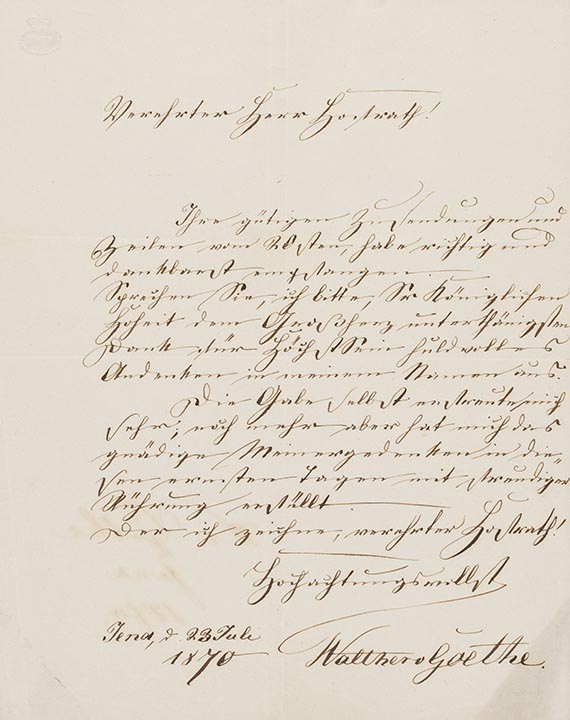 Verehrter Herr Hofrath!
Ihre gütigen Zusendungen und
Zeilen vom 20sten, habe richtig und
dankbarst empfangen.
Sprechen Sie, ich bitte, Sr Königlichen
Hoheit dem Großherz unterthänigsten
Dank für HöchstSein huldvolles
Andenken in meinem Namen aus.
Die Gabe selbst erfreute mich
sehr; noch mehr aber hat mich das
gnädige Meinergedenken in die-
sen ernsten Tagen mit freudiger
Rührung erfüllt.
Der ich zeichne, verehrter Hofrath!
Hochachtungsvollst
Jena, d 23 Juli
1870
Walther v Goethe.